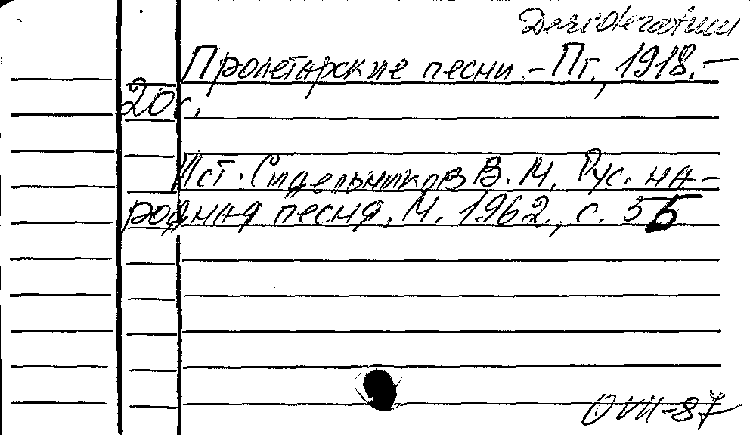 Desideratum
Пролетарские песни. – Пг., 1918. –
20 с.
Ист. Сидельников В. М. Рус. на-
родная песня. М. 1962, с. 35
ОVII-87